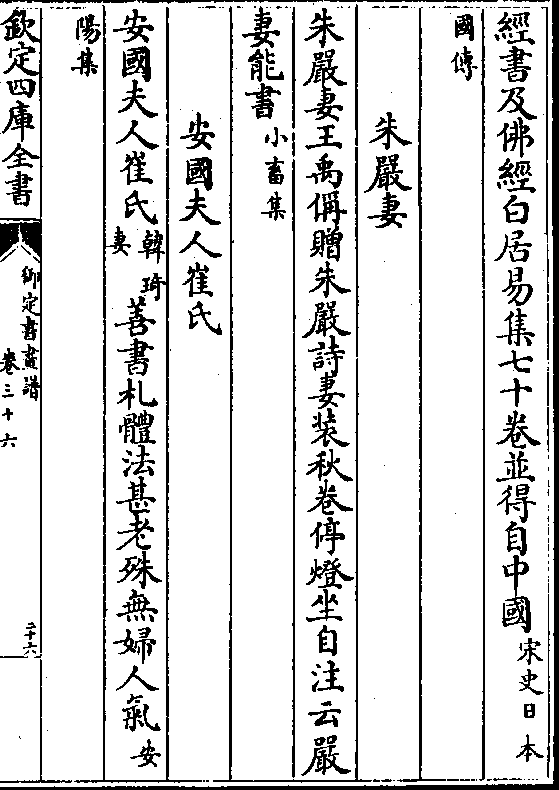 經書及佛經白居易集七十卷並得自中國宋史日本
國傳
朱嚴妻
朱嚴妻王禹偁贈朱嚴詩妻裝秋卷停燈坐自注云嚴
妻能書小畜集
安國夫人崔氏
安國夫人崔氏韓琦妻善書札體法甚老殊無婦人氣安
陽集
欽定四庫全書
御定書畫譜
卷三十六
二十六